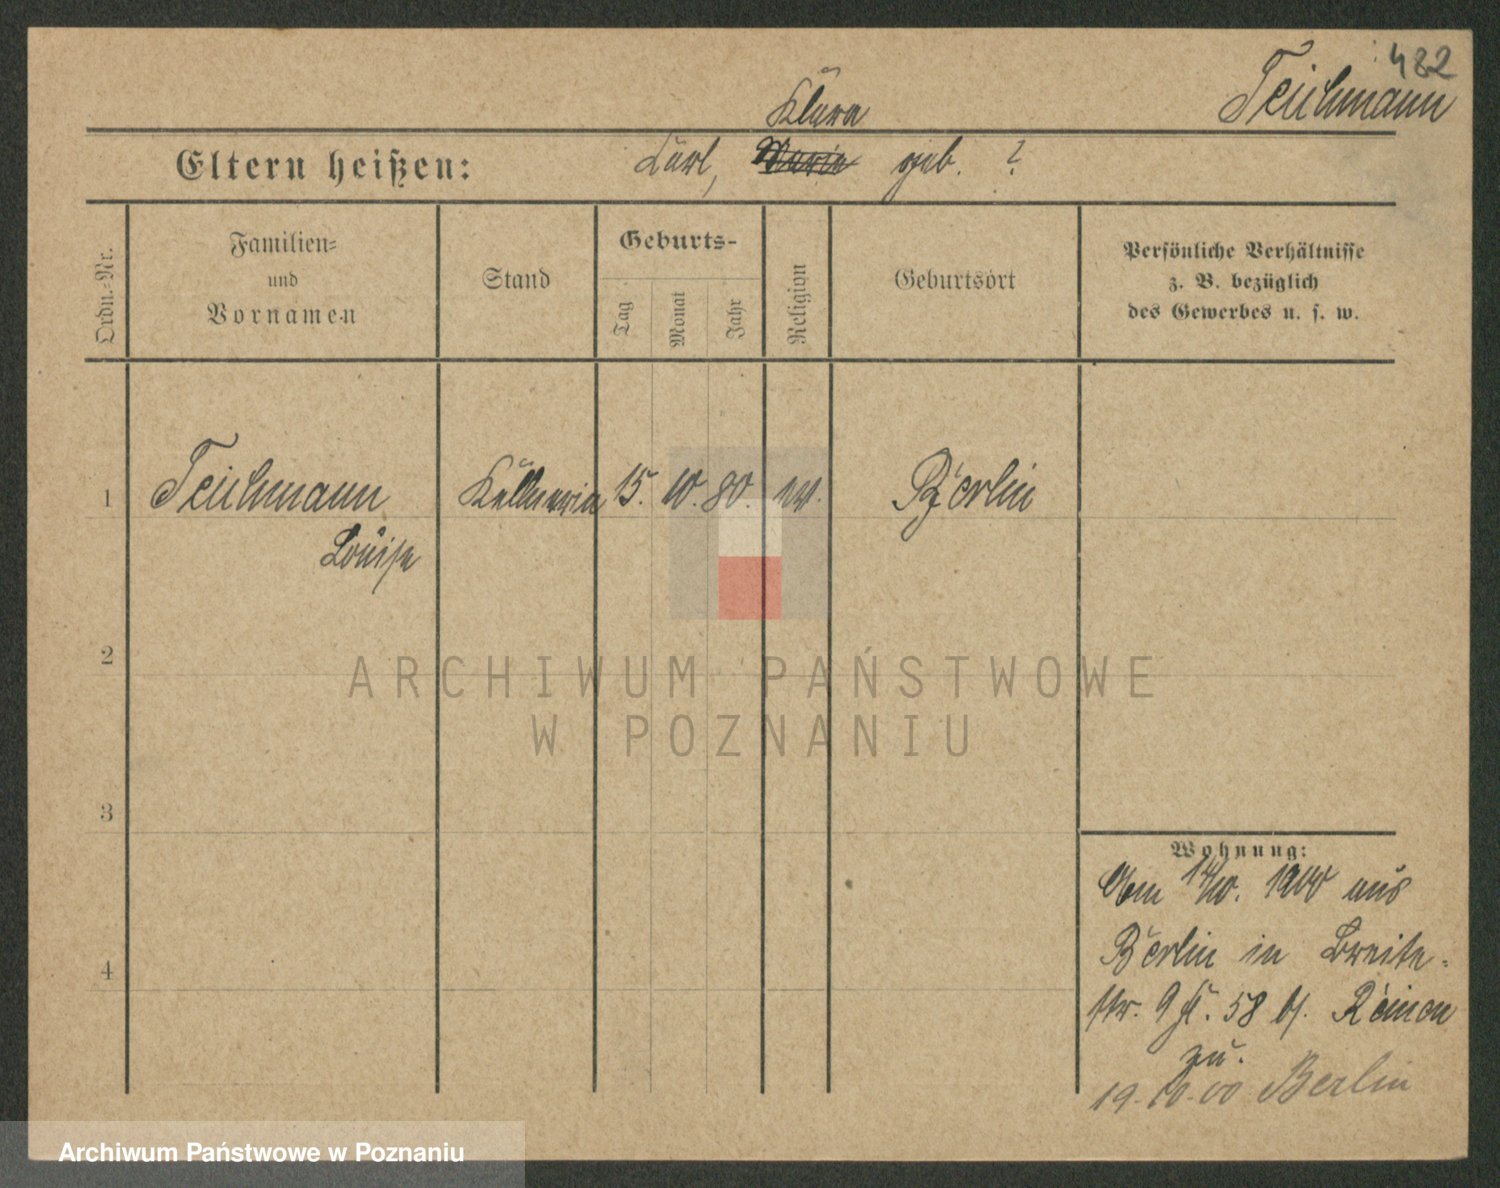 482
Teichmann
Klara
Eltern heißen: Karl, Maria geb. ?
Ordn.-Nr.
Familien-
und
Vornamen
Stand
Geburts-
Tag
Monat
Jahr
Religion
Geburtsort
Persönliche Verhältnisse
z. B. bezüglich
des Gewerbes u. s. w.
1 Teichmann Kellnerin 15. 10. 80. ev. Berlin
Louise
2
3
4
ARCHIWUM PAŃSTWOWE
W POZNANIU
Wohnung:
Am 14/10. 1900 aus
Berlin in Breite-
str. 9 58 b/. Reimann
zu.
19.10.00 Berlin
Archiwum Państwowe w Poznaniu